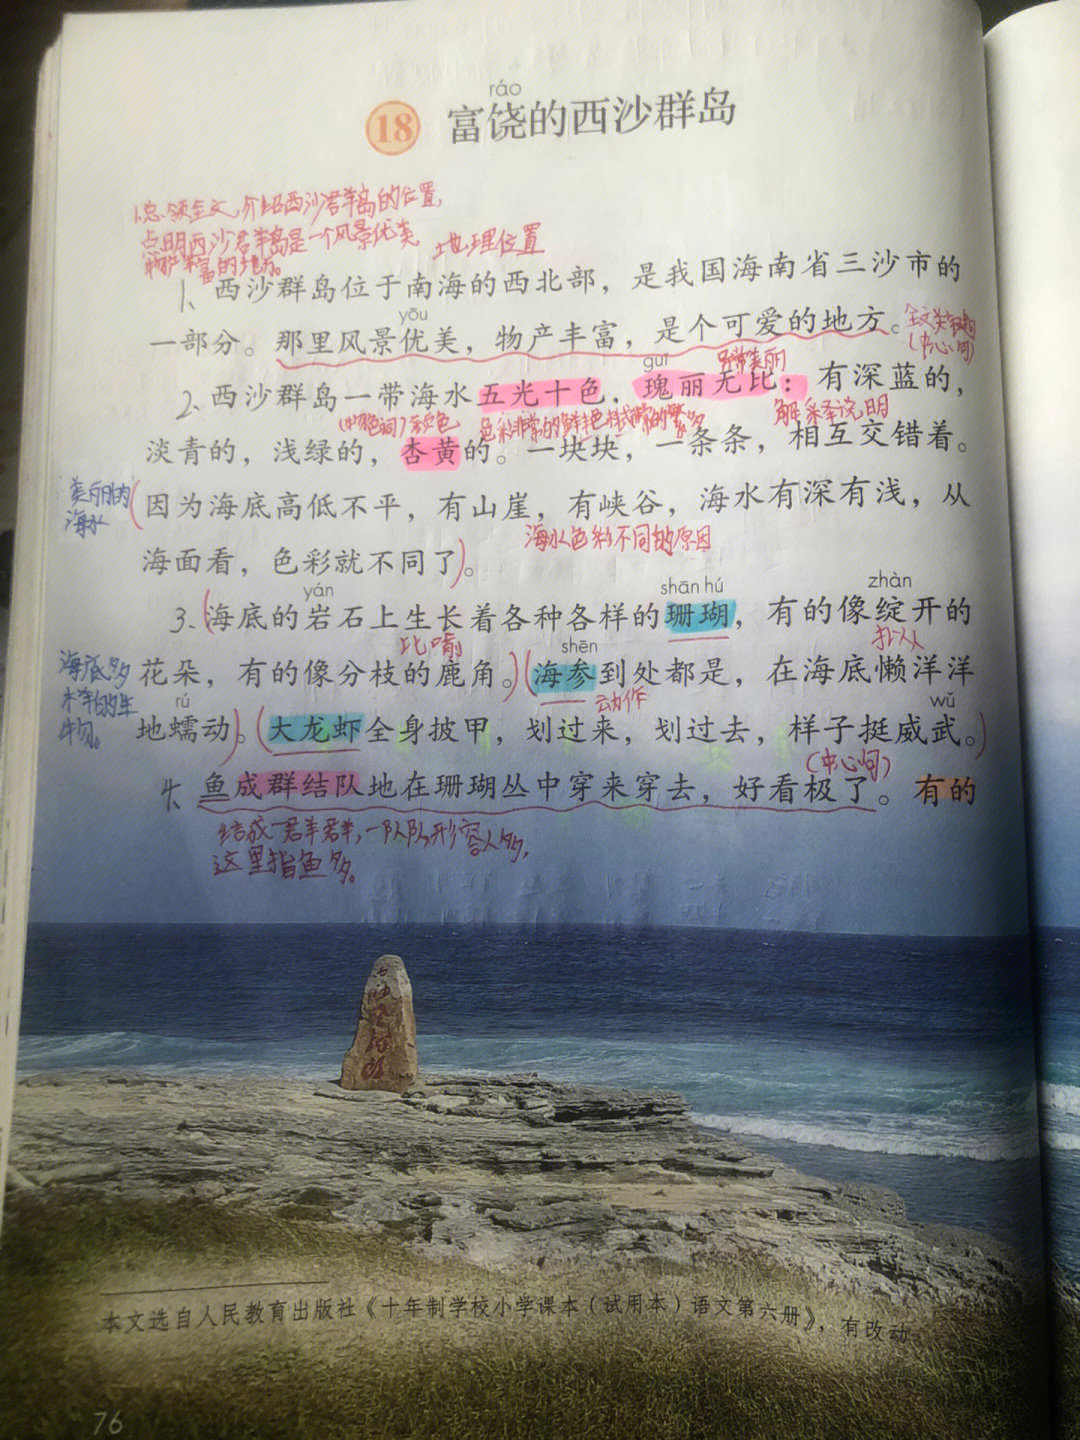 ráo
18 富饶的西沙群岛
1、总领全文,介绍西沙群岛的位置,
点明西沙群岛是一个风景优美 地理位置
物产丰富的地方。
1、西沙群岛位于南海的西北部，是我国海南省三沙市的
yōu
一部分。那里风景优美，物产丰富，是个可爱的地方。
(中心句)
guī 非常美丽
2、西沙群岛一带海水五光十色，瑰丽无比：有深蓝的，
解释说明
淡青的，浅绿的，杏黄的。一块块，一条条，相互交错着。
美丽的
海水
(因为海底高低不平，有山崖，有峡谷，海水有深有浅，从
海水色彩不同的原因
海面看，色彩就不同了)。
yán shān hú zhàn
3、(海底的岩石上生长着各种各样的珊瑚，有的像绽开的
比喻 shēn 拟人
海底多
种的生
物。
花朵，有的像分枝的鹿角。)(海参到处都是，在海底懒洋洋
rú 动作 wǔ
地蠕动)。(大龙虾全身披甲，划过来，划过去，样子挺威武。)
(中心句)
4、鱼成群结队地在珊瑚丛中穿来穿去，好看极了。有的
结成一群群,一队队,形容人多,
这里指鱼多。
本文选自人民教育出版社《十年制学校小学课本（试用本）语文第六册》，有改动。
76